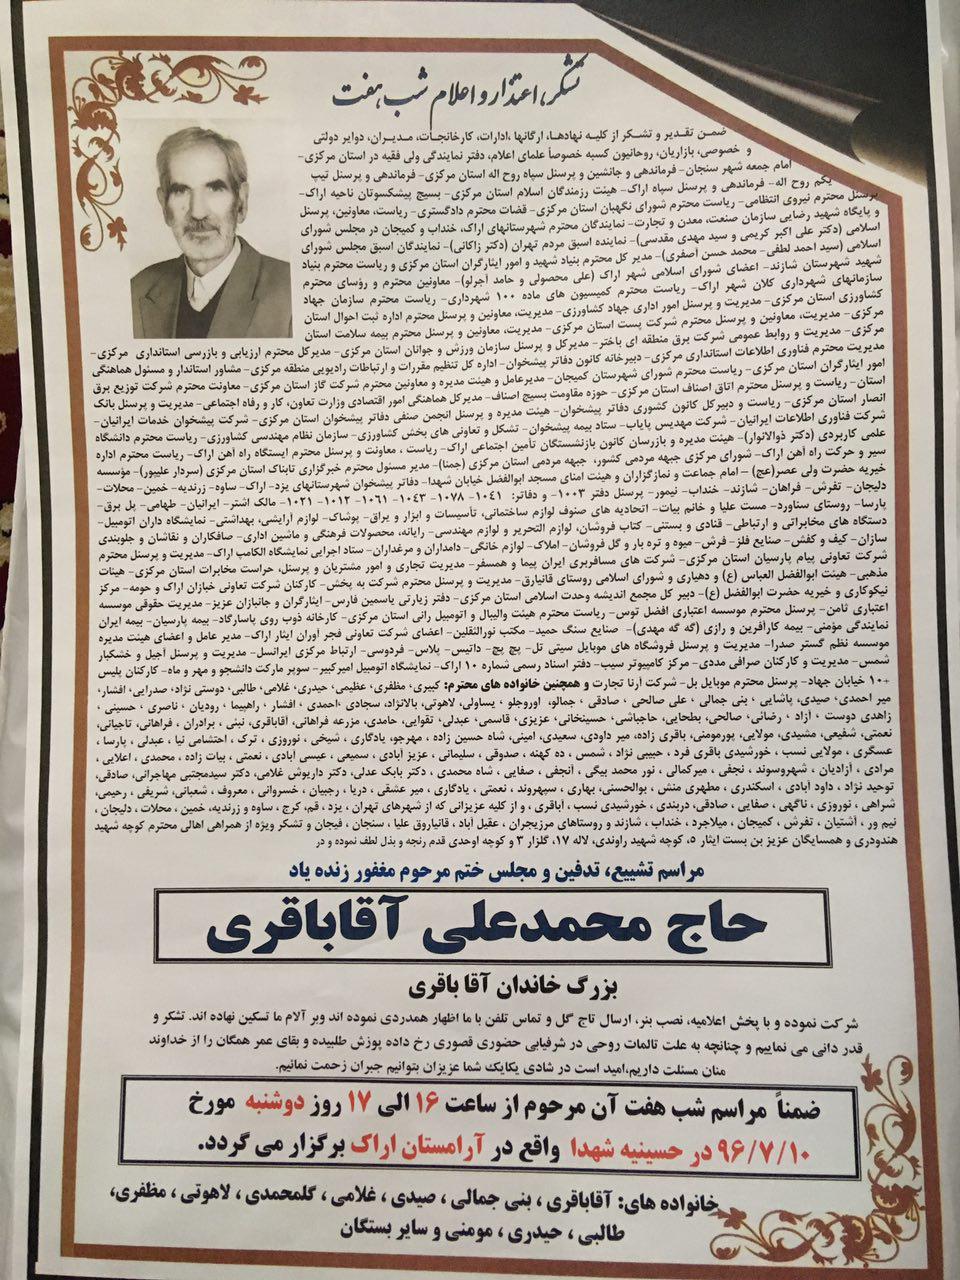 تشکر، اعتذار و اعلام شب هفت
ضمن تقدیر و تشکر از کلیه نهادها، ارگانها ،ادارات، کارخانجات، مدیران، دوایر دولتی
و خصوصی، بازاریان، روحانیون کسبه خصوصاً علمای اعلام، دفتر نمایندگی ولی فقیه در استان مرکزی-
امام جمعه شهر سنجان- فرماندهی و جانشین و پرسنل سپاه روح اله استان مرکزی- فرماندهی و پرسنل تیپ
یکم روح اله- فرماندهی و پرسنل سپاه اراک- هیئت رزمندگان اسلام استان مرکزی- بسیج پیشکسوتان ناحیه اراک-
پرسنل محترم نیروی انتظامی- ریاست محترم شورای نگهبان استان مرکزی- قضات محترم دادگستری- ریاست، معاونین، پرسنل
و پایگاه شهید رضایی سازمان صنعت، معدن و تجارت- نمایندگان محترم شهرستانهای اراک، خنداب و کمیجان در مجلس شورای
اسلامی (دکتر علی اکبر کریمی و سید مهدی مقدسی)- نماینده اسبق مردم تهران (دکتر زاکانی)- نمایندگان اسبق مجلس شورای
اسلامی (سید احمد لطفی- محمد حسن آصفری)- مدیر کل محترم بنیاد شهید و امور ایثارگران استان مرکزی و ریاست محترم بنیاد
شهید شهرستان شازند- اعضای شورای اسلامی شهر اراک (علی محصولی و حامد آجرلو)- معاونین محترم و رؤسای محترم
سازمانهای شهرداری کلان شهر اراک- ریاست محترم کمیسیون های ماده ۱۰۰ شهرداری- ریاست محترم سازمان جهاد
کشاورزی استان مرکزی- مدیریت و پرسنل امور اداری جهاد کشاورزی- مدیریت، معاونین و پرسنل محترم اداره ثبت احوال استان
مرکزی- مدیریت، معاونین و پرسنل محترم شرکت پست استان مرکزی- مدیریت، معاونین و پرسنل محترم بیمه سلامت استان
مرکزی- مدیریت و روابط عمومی شرکت برق منطقه ای باختر- مدیرکل و پرسنل سازمان ورزش و جوانان استان مرکزی- مدیرکل محترم ارزیابی و بازرسی استانداری مرکزی-
مدیریت محترم فناوری اطلاعات استانداری مرکزی- دبیرخانه کانون دفاتر پیشخوان- اداره کل تنظیم مقررات و ارتباطات رادیویی منطقه مرکزی- مشاور استاندار و مسئول هماهنگی
امور ایثارگران استان مرکزی- ریاست محترم شورای شهرستان کمیجان- مدیرعامل و هیئت مدیره و معاونین محترم شرکت گاز استان مرکزی- معاونت محترم شرکت توزیع برق
استان- ریاست و پرسنل محترم اتاق اصناف استان مرکزی- حوزه مقاومت بسیج اصناف- مدیرکل هماهنگی امور اقتصادی وزارت تعاون، کار و رفاه اجتماعی- مدیریت و پرسنل بانک
انصار استان مرکزی- ریاست و دبیرکل کانون کشوری دفاتر پیشخوان- هیئت مدیره و پرسنل انجمن صنفی دفاتر پیشخوان استان مرکزی- شرکت پیشخوان خدمات ایرانیان-
شرکت فناوری اطلاعات ایرانیان- شرکت مهدیس پایاب- ستاد بیمه پیشخوان- تشکل و تعاونی های بخش کشاورزی- سازمان نظام مهندسی کشاورزی- ریاست محترم دانشگاه
علمی کاربردی (دکتر ذوالانوار)- هیئت مدیره و بازرسان کانون بازنشستگان تأمین اجتماعی اراک- ریاست ، معاونت و پرسنل محترم ایستگاه راه آهن اراک- ریاست محترم اداره
سیر و حرکت راه آهن اراک- شورای مرکزی جبهه مردمی کشور، جبهه مردمی استان مرکزی (جمنا)- مدیر مسئول محترم خبرگزاری تابناک استان مرکزی (سردار علیپور)- مؤسسه
خیریه حضرت ولی عصر(عج)- امام جماعت و نمازگزاران و هیئت امنای مسجد ابوالفضل خیابان شهدا- دفاتر پیشخوان شهرستانهای یزد- اراک- ساوه- زرندیه- خمین- محلات-
دلیجان- تفرش- فراهان- شازند- خنداب- نیمور- پرسنل دفتر ۱۰۰۳- و دفاتر: ۱۰۴۱- ۱۰۷۸- ۱۰۴۳- ۱۰۶۱- ۱۰۱۲- ۱۰۲۱- مالک اشتر- ایرانیان- طهامی- پل برق-
پارسا- روستای سناورد- مست علیا و خانم بیات- اتحادیه های صنوف لوازم ساختمانی، تأسیسات و ابزار و یراق- پوشاک- لوازم آرایشی، بهداشتی- نمایشگاه داران اتومبیل-
دستگاه های مخابراتی و ارتباطی- قنادی و بستنی- کتاب فروشان، لوازم التحریر و لوازم مهندسی- رایانه، محصولات فرهنگی و ماشین اداری- صافکاران و نقاشان و جلوبندی
سازان- کیف و کفش- صنایع فلز- فرش- میوه و تره بار و گل فروشان- املاک- لوازم خانگی- دامداران و مرغداران- ستاد اجرایی نمایشگاه الکامپ اراک- مدیریت و پرسنل محترم
شرکت تعاونی پیام پارسیان استان مرکزی- شرکت های مسافربری ایران پیما و همسفر- مدیریت تجاری و امور مشتریان و پرسنل، حراست مخابرات استان مرکزی- هیئات
مذهبی- هیئت ابوالفضل العباس (ع) و دهیاری و شورای اسلامی روستای قانیارق- مدیریت و پرسنل محترم شرکت به پخش- کارکنان شرکت تعاونی خبازان اراک و حومه- مرکز
نیکوکاری و خیریه حضرت ابوالفضل (ع)- دبیر کل مجمع اندیشه وحدت اسلامی استان مرکزی- دفتر زیارتی یاسمین فارس- ایثارگران و جانبازان عزیز- مدیریت حقوقی موسسه
اعتباری ثامن- پرسنل محترم موسسه اعتباری افضل توس- ریاست محترم هیئت والیبال و اتومبیل رانی استان مرکزی- کارخانه ذوب روی پاسارگاد- بیمه پارسیان- بیمه ایران
نمایندگی مؤمنی- بیمه کارآفرین و رازی (گه گه مهدی)- صنایع سنگ حمید- مکتب نورالثقلین- اعضای شرکت تعاونی فجر آوران ایثار اراک- مدیر عامل و اعضای هیئت مدیره
موسسه نظم گستر صدرا- مدیریت و پرسنل فروشگاه های موبایل سیتی تل- پچ پچ- داتیس- پلاس- فردوسی- ارتباط مرکزی ایرانسل- مدیریت و پرسنل آجیل و خشکبار
شمس- مدیریت و کارکنان صرافی مددی- مرکز کامپیوتر سیب- دفتر اسناد رسمی شماره ۱۰ اراک- نمایشگاه اتومبیل امیرکبیر- سوپر مارکت دانشجو و مهر و ماه- کارکنان پلیس
+۱۰ خیابان جهاد- پرسنل محترم موبایل بل- شرکت آرنا تجارت و همچنین خانواده های محترم: کبیری، مظفری، عظیمی، حیدری، غلامی، طالبی، دوستی نژاد، صدرایی، افشار،
میر احمدی، صیدی، پاشایی ، بنی جمالی ، علی صالحی ، صادقی ، جمالو، اوروجلو ، یساولی، لاهوتی، بالانژاد، سجادی ،احمدی ، افشار ، راهپیما ، رودیان ، ناصری ، حسینی ،
زاهدی دوست ، آزاد ، رضائی ، صالحی ، بطحایی، حاجباشی، حسینخانی، عزیزی، قاسمی، عبدلی ، تقوایی ، حامدی، مزرعه فراهانی، آقاباقری، نبئی ، برادران ، فراهانی، تاجیانی،
نعمتی، شفیعی، مشیدی، مولایی، پورمومنی، باقری زاده، میر داودی، سعیدی، امینی، شاه حسین زاده ، مهرجو، یادگاری ، شیخی ، نوروزی ، ترک ، احتشامی نیا ، عبدلی ، پارسا ،
عسگری ، مولایی نسب ، خورشیدی باقری فرد ، حبیبی نژاد ، شمس ، ده کهنه ، صدوقی ، سلیمانی ، عزیز آبادی ، سمیعی ، عیسی آبادی ، نعمتی ، بیات زاده ، محمدی ، اعلایی ،
مرادی ، آزادیان ، شهروسوند ، نجفی ، میرکمالی ، نور محمد بیگی ، آنجفی ، صفایی ، شاه محمدی ، دکتر بابک عدلی، دکتر داریوش غلامی، دکتر سیدمجتبی مهاجرانی، صادقی،
توحید نژاد ، داود آبادی ، اسکندری ، مطهری منش ، بوالحسنی، بهاری ، سپهروند ، نعمتی ، یادگاری ، میر عشقی ، دریا ، رجبیان ، خسروانی ، معروف ، شعبانی، شریفی ، رحیمی،
شراهی ، نوروزی ، ناگهی ، صفایی ، صادقی، دربندی ، خورشیدی نسب ، آباقری ، و از کلیه عزیزانی که از شهرهای تهران ، یزد ، قم، کرج ، ساوه و زرندیه، خمین ، محلات ، دلیجان ،
نیم ور ، آشتیان ، تفرش ، کمیجان ، میلاجرد ، خنداب ، شازند و روستاهای مرزیجران ، عقیل آباد ، قانیاروق علیا ، سنجان ، فیجان و تشکر ویژه از همراهی اهالی محترم کوچه شهید
هندودری و همسایگان عزیز بن بست ایثار ۵، کوچه شهید راوندی، لاله ۱۷، گلزار ۳ و کوچه اوحدی قدم رنجه و بذل لطف نموده و در
مراسم تشییع، تدفین و مجلس ختم مرحوم مغفور زنده یاد
حاج محمدعلی آقاباقری
بزرگ خاندان آقا باقری
شرکت نموده و با پخش اعلامیه، نصب بنر، ارسال تاج گل و تماس تلفن با ما اظهار همدردی نموده اند وبر آلام ما تسکین نهاده اند. تشکر و
قدر دانی می نماییم و چنانچه به علت تالمات روحی در شرفیابی حضوری قصوری رخ داده پوزش طلبیده و بقای عمر همگان را از خداوند
منان مسئلت داریم،امید است در شادی یکایک شما عزیزان بتوانیم جبران زحمت نمائیم.
ضمناً مراسم شب هفت آن مرحوم از ساعت ۱۶ الی ۱۷ روز دوشنبه مورخ
۹۶/۷/۱۰ در حسینیه شهدا واقع در آرامستان اراک برگزار می گردد.
خانواده های: آقاباقری ، بنی جمالی ، صیدی ، غلامی ، گلمحمدی ، لاهوتی ، مظفری،
طالبی ، حیدری ، مومنی و سایر بستگان